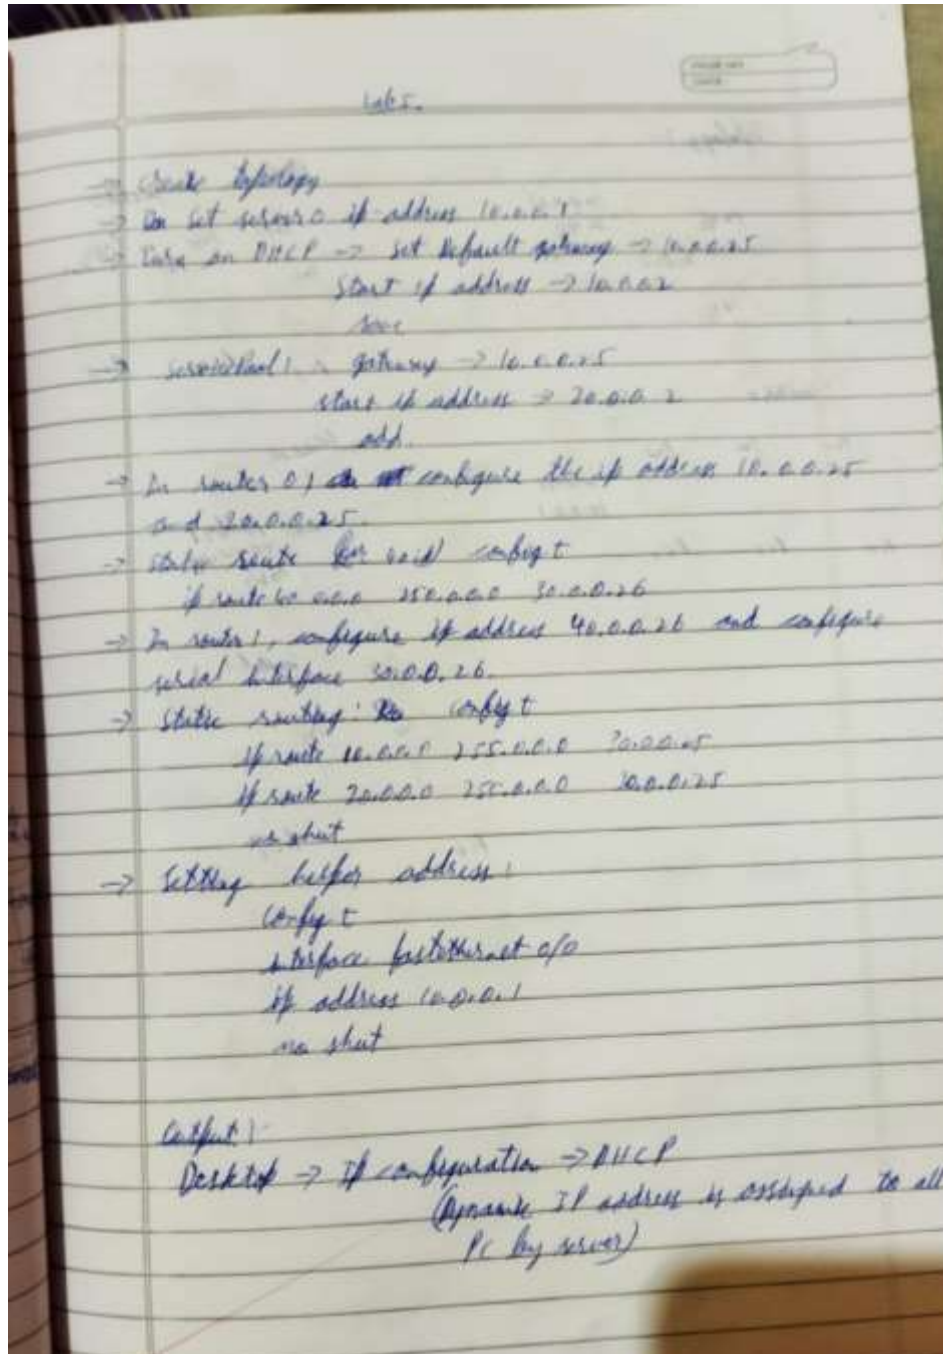 Lab 5.
→ Create topology
→ Set server 0 ip address 10.0.0.1
→ Turn on DHCP → Set Default gateway → 10.0.0.25
Start ip address → 10.0.0.2
save
→ gateway → 10.0.0.25
start ip address → 20.0.0.2
add.
→ In router 0, configure the ip address 10.0.0.25
and 20.0.0.25.
→ route config t
ip route 40.0.0.0 30.0.0.26
→ In router 1, configure ip address 40.0.0.26 and configure
serial interface 30.0.0.26.
→ Static routing: config t
ip route 10.0.0.0 255.0.0.0 30.0.0.25
ip route 20.0.0.0 255.0.0.0 30.0.0.25
no shut
→ Setting helper address:
config t
interface fastethernet 0/0
ip address 10.0.0.1
no shut
Output:
Desktop → IP configuration → DHCP
(Dynamic IP address is assigned to all
PC by server)